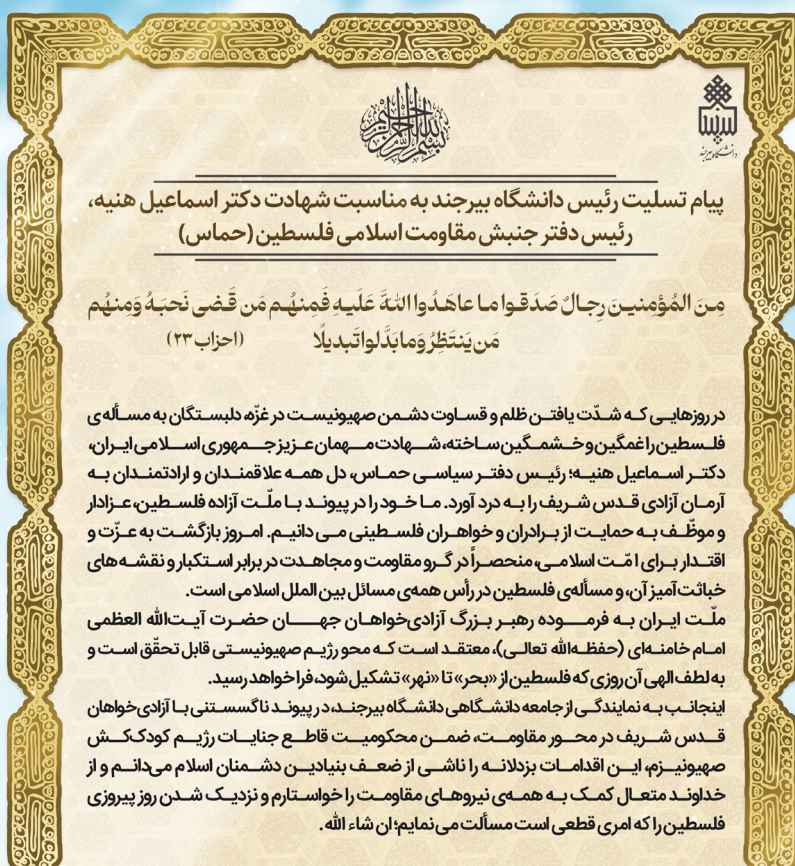 بسم الله الرحمن الرحیم
دانشگاه بیرجند
پیام تسلیت رئیس دانشگاه بیرجند به مناسبت شهادت دکتر اسماعیل هنیه،
رئیس دفتر جنبش مقاومت اسلامی فلسطین (حماس)
مِـنَ المُؤمِنیـنَ رِجـالٌ صَدَقـوا مـا عاهَـدُوا اللهَ عَلَیـهِ فَمِنهُـم مَن قَـضی نَحبَـهُ وَمِنهُم
مَن یَنتَظِرُ وَما بَدَّلوا تَبدیلًا (احزاب ۲۳)
در روزهایـی کـه شـدّت یافتـن ظلم و قساوت دشـمن صهیونیسـت در غزّه، دلبسـتگان به مسـأله‌ی
فلسـطین را غمگین و خـشـمـگین سـاخته، شـهادت مـهمان عـزیز جـمهوری اسـلامی ایران،
دکتـر اسـماعیل هنیـه؛ رئیـس دفتـر سیاسـی حمـاس، دل همـه علاقمنـدان و ارادتمنـدان بـه
آرمـان آزادی قـدس شـریف را بـه درد آورد. مـا خـود را در پیونـد بـا ملّـت آزاده فلسـطین، عـزادار
و موظّـف بـه حمایـت از بـرادران و خواهـران فلسـطینی مـی دانیـم. امـروز بازگشـت به عـزّت و
اقتـدار بـرای امّـت اسلامـی، منحصـراً در گـرو مقاومت و مجاهـدت در برابر اسـتکبار و نقشـه های
خباثت آمیز آن، و مسأله‌ی فلسطین در رأس همه‌ی مسائل بین الملل اسلامی است.
ملّـت ایـران بـه فرمـوده رهبـر بـزرگ آزادی‌خواهـان جهـان حضرت آیـت‌الله العظمی
امـام خامنـه‌ای (حفظـه‌الله تعالـی)، معتقـد اسـت کـه محو رژیـم صهیونیسـتی قابل تحقّق اسـت و
به لطف الهی آن روزی که فلسطین از «بحر» تا «نهر» تشکیل شود، فرا خواهد رسید.
اینجانـب بـه نمایندگـی از جامعه دانشـگاهی دانشـگاه بیرجنـد، در پیونـد ناگسسـتنی بـا آزادی‌خواهان
قـدس شـریف در محـور مقاومـت، ضمـن محکومیـت قاطـع جنایـات رژیـم کودک‌کـش
صهیونیـزم، ایـن اقدامـات بزدلانـه را ناشـی از ضعـف بنیادیـن دشـمنان اسلام می‌دانـم و از
خداونـد متعـال کمـک بـه همـه‌ی نیروهـای مقاومـت را خواسـتارم و نزدیـک شـدن روز پیـروزی
فلسطین را که امری قطعی است مسألت می نمایم؛ ان شاء الله.